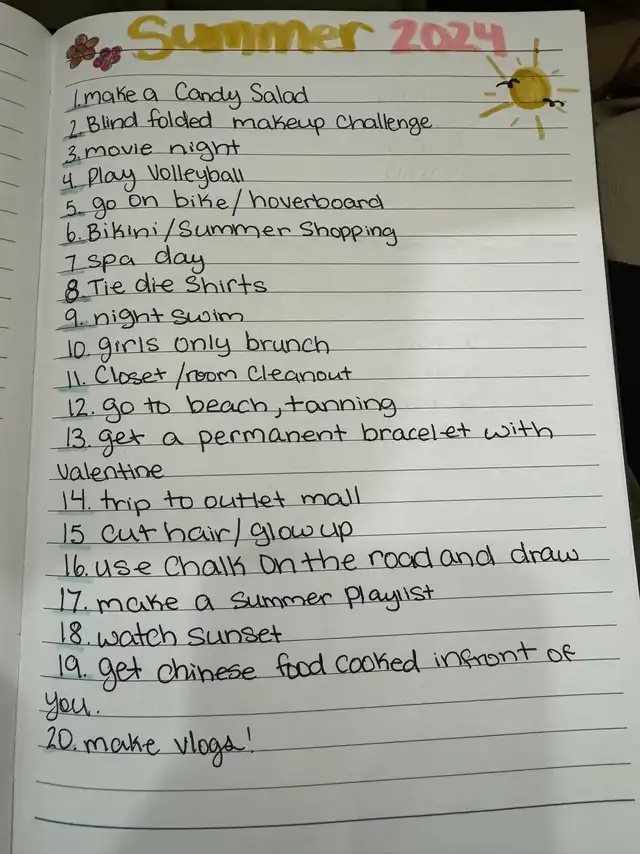 Summer 2024
1. make a Candy Salad
2. Blind folded makeup challenge
3. movie night
4. Play Volleyball
5. go on bike/hoverboard
6. Bikini/Summer Shopping
7 spa day
8. Tie die Shirts
9. night swim
10. girls only brunch
11. Closet/room Cleanout
12. go to beach, tanning
13. get a permanent bracelet with
Valentine
14. trip to outlet mall
15 cut hair/glow up
16. use Chalk on the road and draw
17. make a summer playlist
18. watch sunset
19. get chinese food cooked infront of
you.
20. make vlogs!